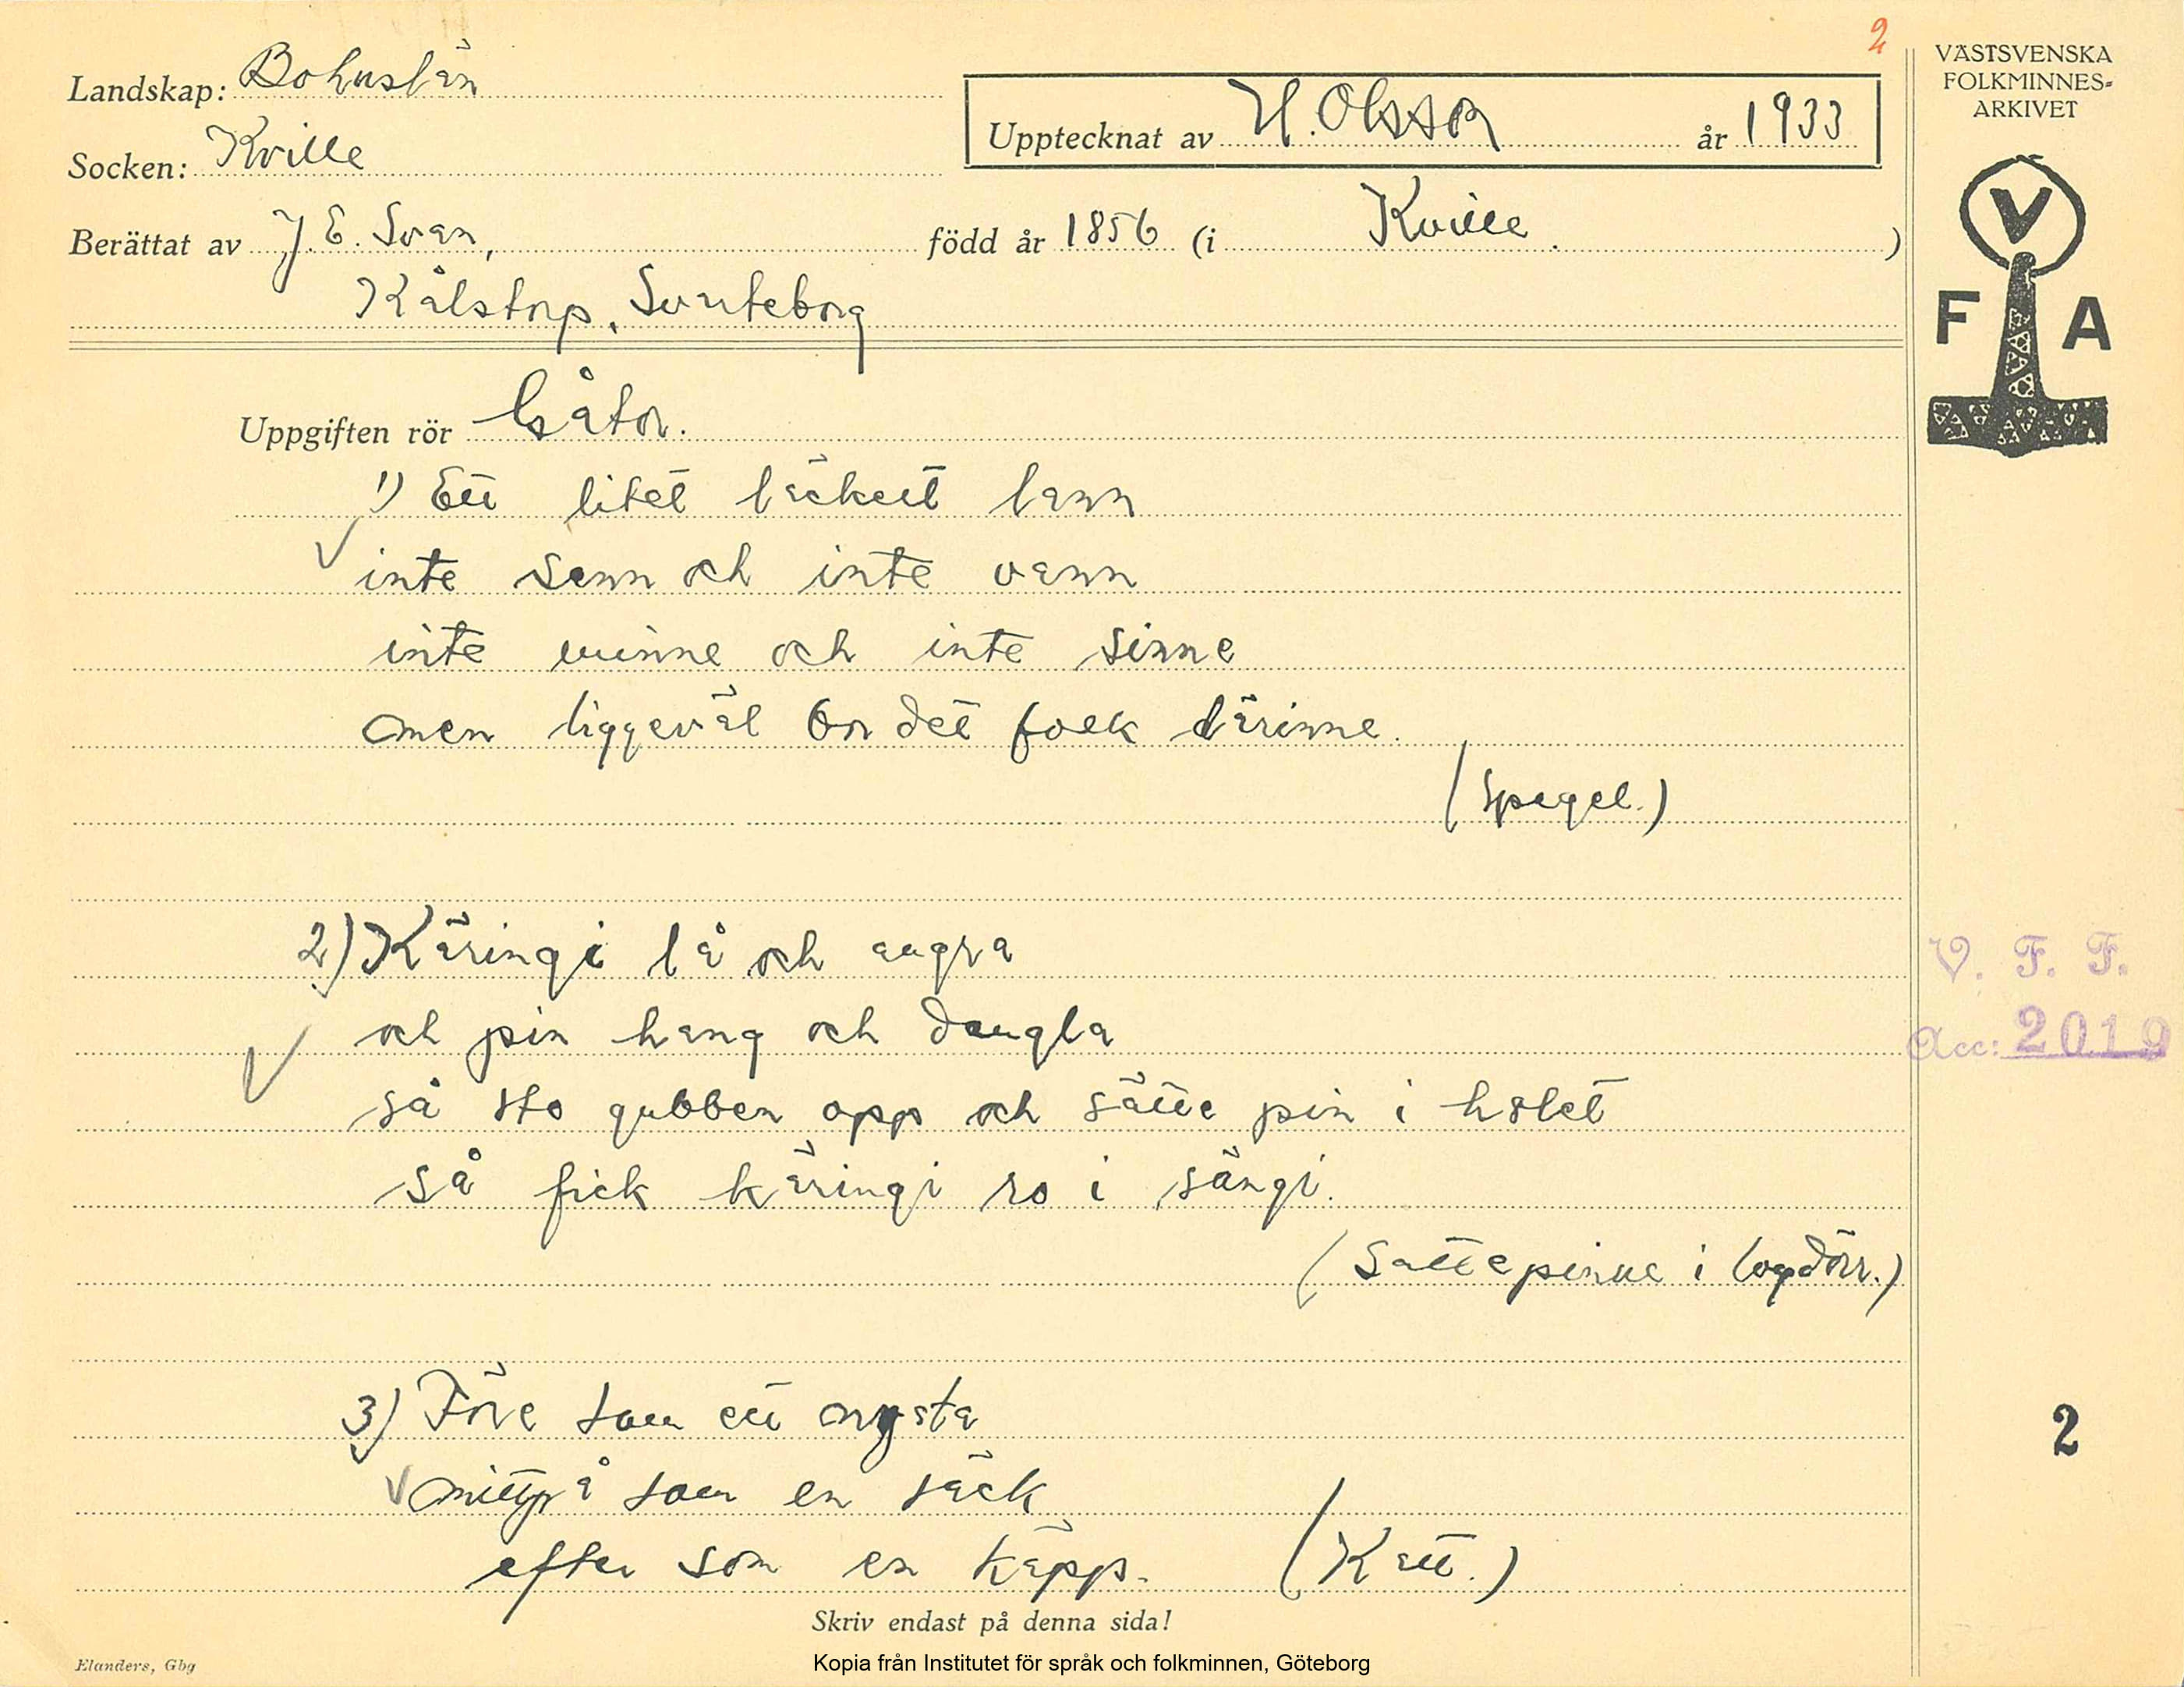 2
Landskap: Bohuslän
Socken: Kville
Upptecknat av H. Olsson år 1933
Berättat av J. E. Svan, född år 1856 (i Kville.)
Kålstorp, Svarteborg
VÄSTSVENSKA
FOLKMINNES-
ARKIVET
V
F A
Uppgiften rör Gåtor.
1) Ett litet läckert lann
inte sann och inte vann
inte minne och inte sinne
men liggeväl bor det folk därinne.
(Spegel.)
2) Käringi lå och angra
och pin hang och dangla
så sto gubben opp och sätte pin i hålet
så fick käringi ro i sängi.
(Sattepinne i logdörr.)
V. F. F.
Acc: 2019
3) Före som ett nysta
mittpå som en säck
efter som en käpp. (Katt.)
2
Skriv endast på denna sida!
Elanders, Gbg
Kopia från Institutet för språk och folkminnen, Göteborg